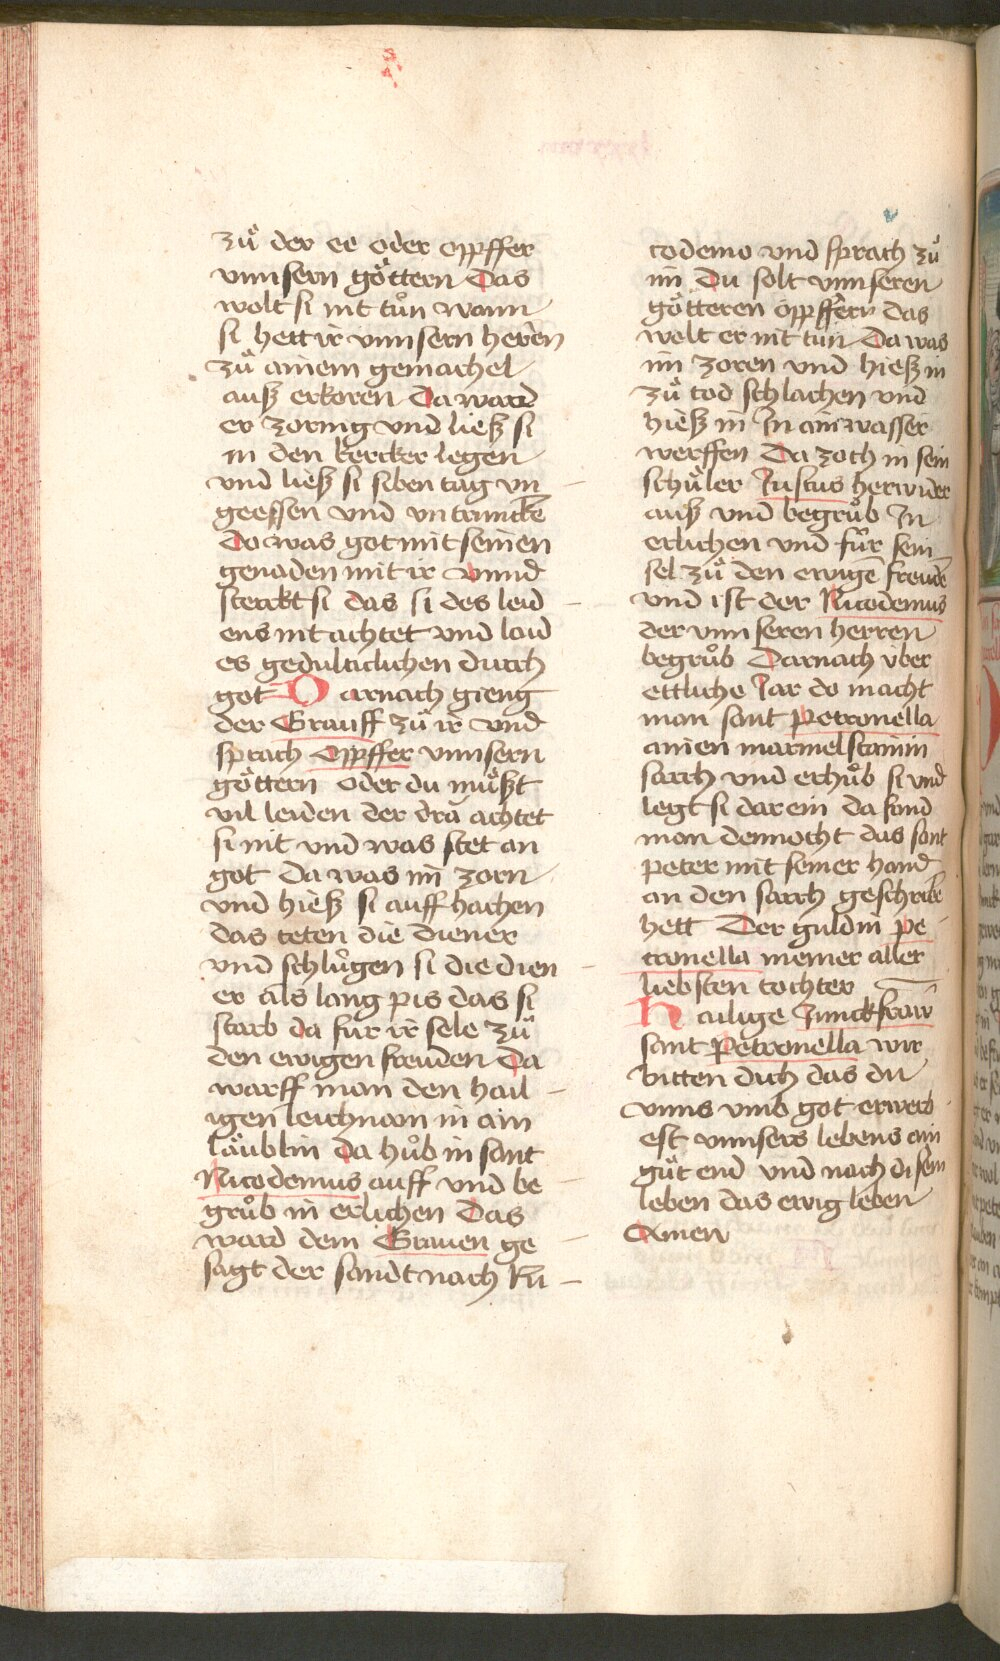 zů der ee oder opffer
vnnsern göttern Das
wolt si nit tůn wann
si hett ir vnnsern herren
zů ainem gemachel
auſz erkoren Da ward
er zornig vnd lieſz si
in den kercker legen
vnd lieſz si siben tag vn
geessen vnd vntrunckē
Do was got mit seinen
genaden mit ir vnnd
sterckt si das si des leid
ens nit achtet vnd laid
es gedulticlichen durch
got Darnach gieng
der Grauff zů ir vnd
sprach opffer vnnsern
göttern oder du můſzt
vil leiden der drů achtet
si nit vnd was stet an
got Da was im zorn
vnd hieſz si auff hachen
das teten die diener
vnd schlůgen si die dien
er als lang pis das si
starb da fůr ir sele zů
den ewigen freuden Da
warff man den hail
igen leichnam in ain
läublin da hůb in sant
Nicodemus auff vnd be
grůb in erlichen Das
ward dem Grauen ge
sagt der sandt nach Ni
codemo vnd sprach zů
im Du solt vnnseren
götteren opffern das
wolt er nit tůn Da was
im zoren vnd hieſz in
zů tod schlachen vnd
hieſz in In ain wasser
werffen Da zoch in sein
schůler Justus herwider
auſz vnd begrůb In
erlichen vnd fůr sein
sel zů den ewigē freudē
vnd ist der Nicodemus
der vnnseren herren
begrůb Darnach über
ettliche Jar do macht
man sant Petronella
ainen marmelstainin
sarch vnd erhůb si vnd
legt si dar ein da fand
man dennocht das sant
peter mit seiner hand
an den sarch geschribē
hett Der guldin pe
tronella meiner aller
liebsten tochter
Hailige Junckfraw
sant Petronella wir
bitten dich das du
vnns vmb got erwerb
est vnnsers lebens ain
gůt end vnd nach disem
leben das ewig leben
Amen